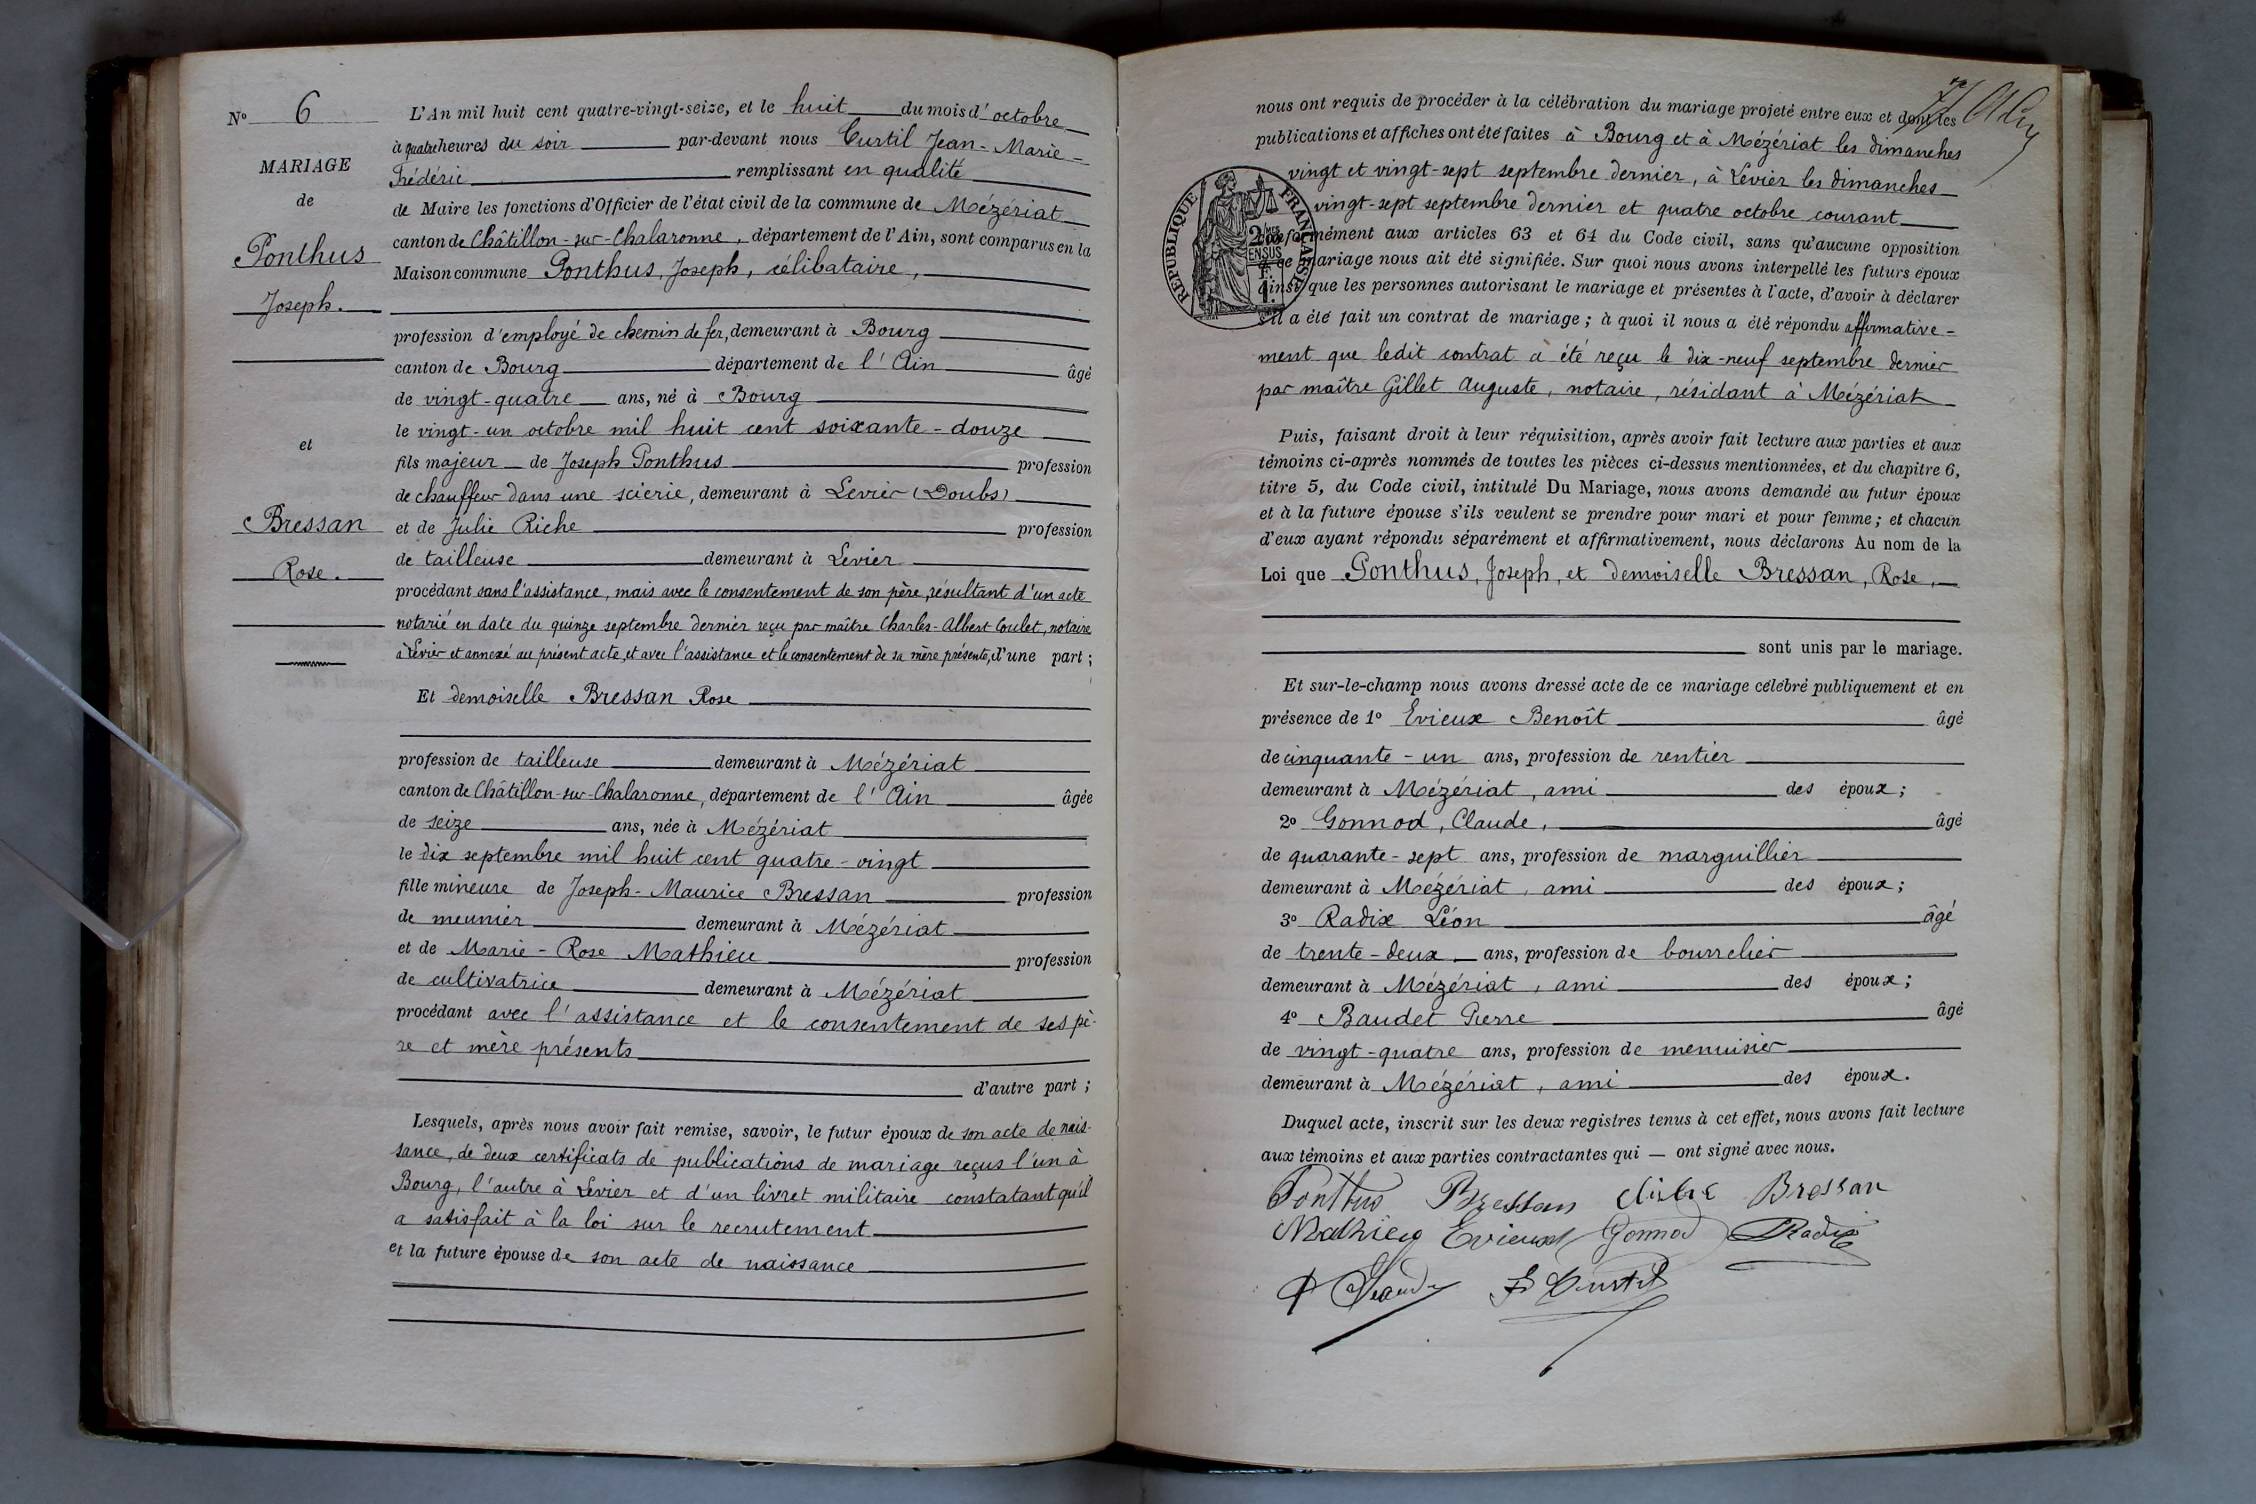 N° 6
MARIAGE
de
Ponthus
Joseph.
et
Bressan
Rose.
L'An mil huit cent quatre-vingt-seize, et le huit du mois d'octobre
à quatre heures du soir par-devant nous Curtil Jean-Marie-
Frédéric remplissant en qualité
de Maire les fonctions d'Officier de l'état civil de la commune de Mézériat
canton de Châtillon-sur-Chalaronne, département de l'Ain, sont comparus en la
Maison commune Ponthus, Joseph, célibataire,
profession d'employé de chemin de fer, demeurant à Bourg
canton de Bourg département de l'Ain âgé
de vingt-quatre ans, né à Bourg
le vingt-un octobre mil huit cent soixante-douze
fils majeur de Joseph Ponthus profession
de chauffeur dans une scierie, demeurant à Levier (Doubs)
et de Julie Riche profession
de tailleuse demeurant à Levier
procédant sans l'assistance, mais avec le consentement de son père, résultant d'un acte
notarié en date du quinze septembre dernier reçu par maître Charles-Albert Coulet, notaire
à Levier et annexé au présent acte, et avec l'assistance et le consentement de sa mère présente, d'une part;
Et demoiselle Bressan Rose
profession de tailleuse demeurant à Mézériat
canton de Châtillon-sur-Chalaronne, département de l'Ain âgée
de seize ans, née à Mézériat
le dix septembre mil huit cent quatre-vingt
fille mineure de Joseph-Maurice Bressan profession
de meunier demeurant à Mézériat
et de Marie-Rose Mathieu profession
de cultivatrice demeurant à Mézériat
procédant avec l'assistance et le consentement de ses pè-
re et mère présents
d'autre part;
Lesquels, après nous avoir fait remise, savoir, le futur époux de son acte de nais-
sance, de deux certificats de publications de mariage reçus l'un à
Bourg, l'autre à Levier et d'un livret militaire constatant qu'il
a satisfait à la loi sur le recrutement
et la future épouse de son acte de naissance
nous ont requis de procéder à la célébration du mariage projeté entre eux et dont les
publications et affiches ont été faites à Bourg et à Mézériat les dimanches
vingt et vingt-sept septembre dernier, à Levier les dimanches
vingt-sept septembre dernier et quatre octobre courant
conformément aux articles 63 et 64 du Code civil, sans qu'aucune opposition
à ce mariage nous ait été signifiée. Sur quoi nous avons interpellé les futurs époux
ainsi que les personnes autorisant le mariage et présentes à l'acte, d'avoir à déclarer
s'il a été fait un contrat de mariage; à quoi il nous a été répondu affirmative-
ment que ledit contrat a été reçu le dix-neuf septembre dernier
par maître Gillet Auguste, notaire, résidant à Mézériat
RÉPUBLIQUE FRANÇAISE
Puis, faisant droit à leur réquisition, après avoir fait lecture aux parties et aux
témoins ci-après nommés de toutes les pièces ci-dessus mentionnées, et du chapitre 6,
titre 5, du Code civil, intitulé Du Mariage, nous avons demandé au futur époux
et à la future épouse s'ils veulent se prendre pour mari et pour femme; et chacun
d'eux ayant répondu séparément et affirmativement, nous déclarons Au nom de la
Loi que Ponthus, Joseph, et demoiselle Bressan, Rose,
sont unis par le mariage.
Et sur-le-champ nous avons dressé acte de ce mariage célébré publiquement et en
présence de 1° Evieux Benoît âgé
de cinquante-un ans, profession de rentier
demeurant à Mézériat, ami des époux;
2° Gonnod, Claude, âgé
de quarante-sept ans, profession de marguillier
demeurant à Mézériat, ami des époux;
3° Radix Léon âgé
de trente-deux ans, profession de bourrelier
demeurant à Mézériat, ami des époux;
4° Baudet Pierre âgé
de vingt-quatre ans, profession de menuisier
demeurant à Mézériat, ami des époux.
Duquel acte, inscrit sur les deux registres tenus à cet effet, nous avons fait lecture
aux témoins et aux parties contractantes qui — ont signé avec nous.
Ponthus Bressan Bressan
Mathieu Evieux Gonnod Radix
Curtil